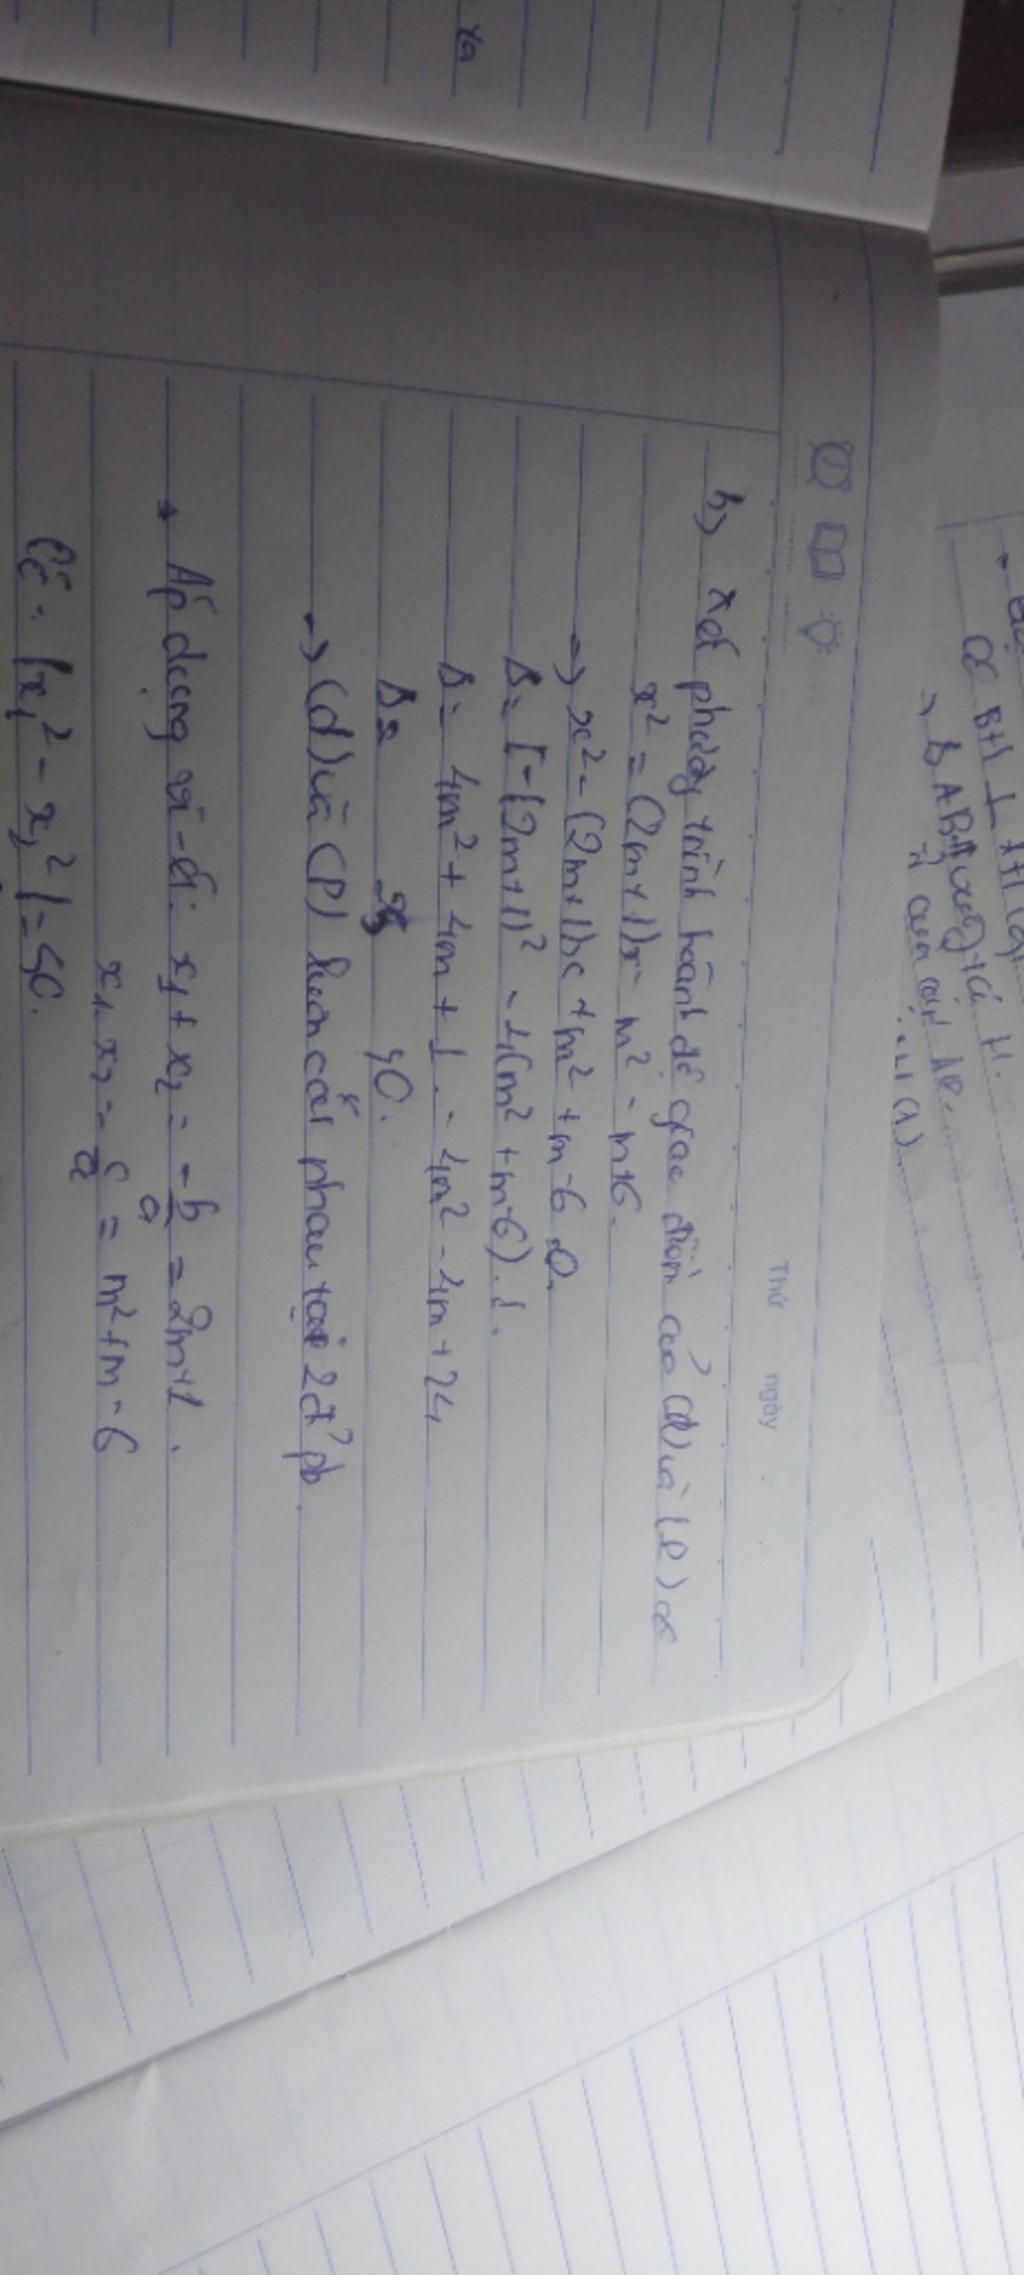 Thứ ngày
b) Xét phương trình hoành độ giao điểm của (d) và (P) có
x² = (2m+1)x - m² - m+6.
→ x² - (2m+1)x + m² + m - 6 = 0.
Δ = [-(2m+1)]² - 4(m² + m - 6).1.
Δ = 4m² + 4m + 1 - 4m² - 4m + 24
Δ = 25 > 0.
→ (d) và (P) luôn cắt nhau tại 2 đ' pb.
* Áp dụng vi-ét: x₁ + x₂ = -b/a = 2m+1.
x₁. x₂ = c/a = m² + m - 6
Có: |x₁² - x₂²| = 50.